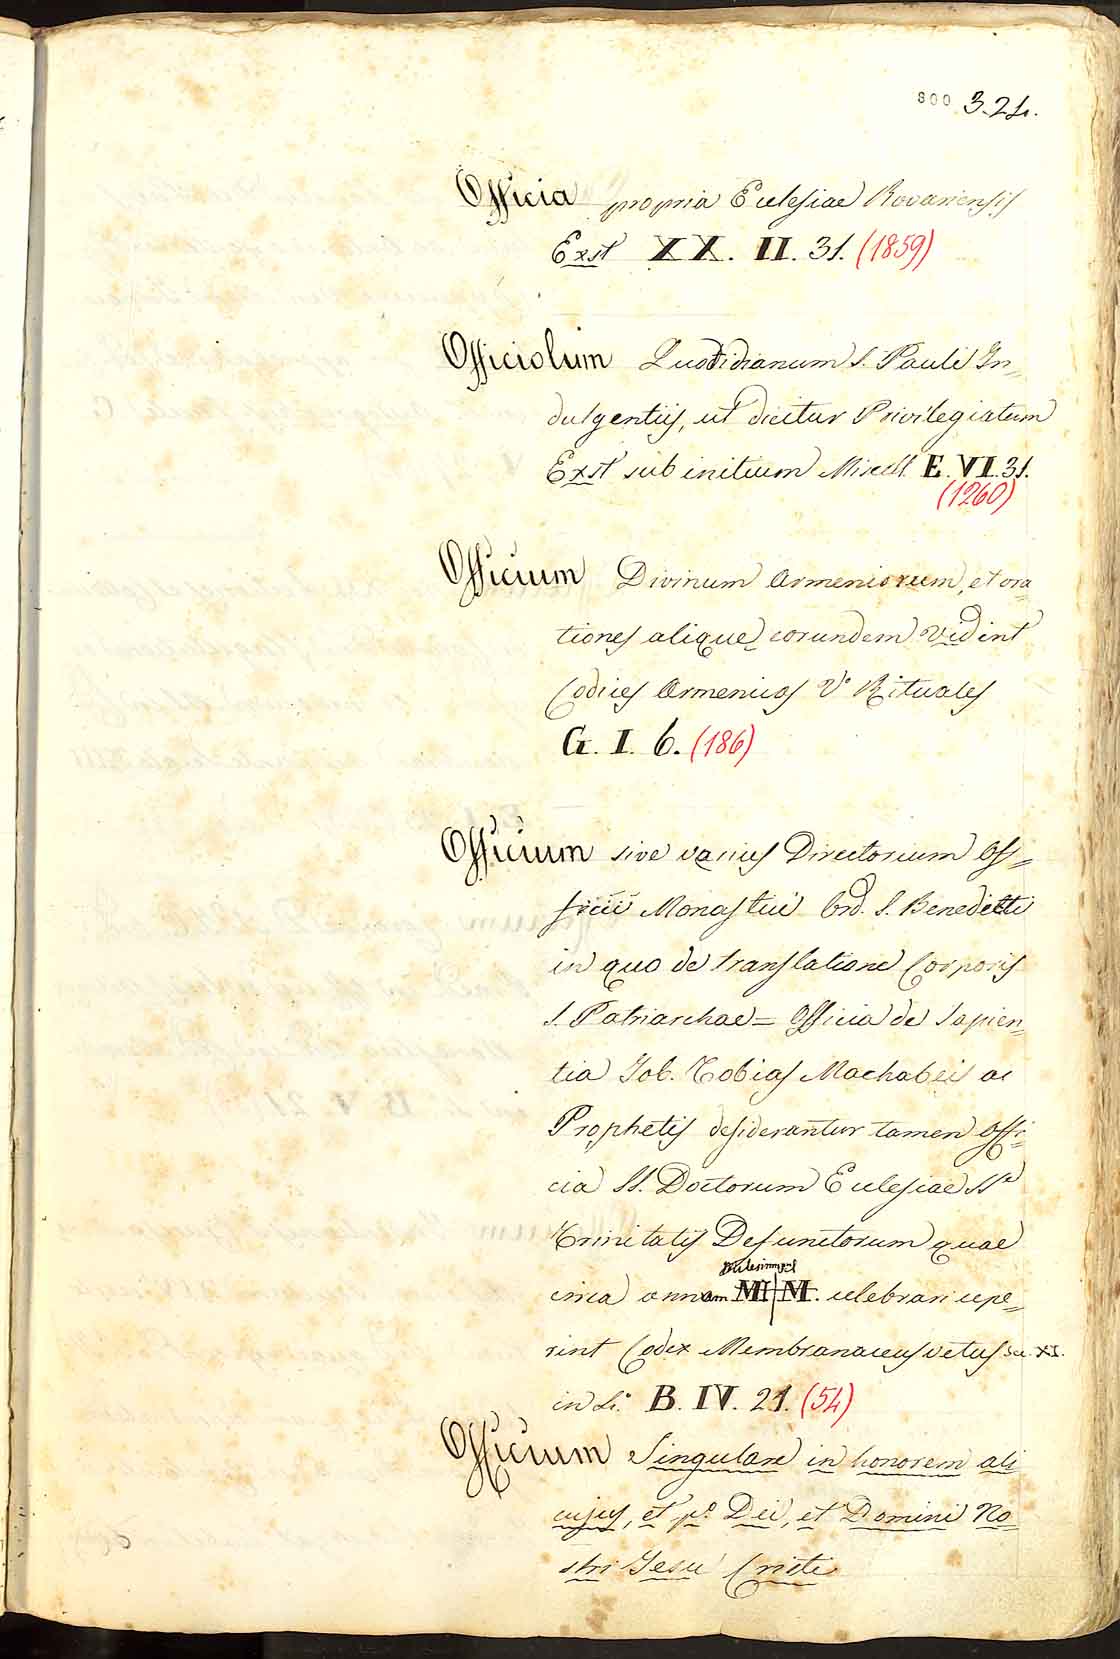 300 324.
Officia propria Eclesiae Rovariensis
Exst XX. II. 31. (1859)
Officiolum Quotidianum S. Pauli In=
dulgentiis, ut dicitur Privilegiatum
Exst sub initium Miscell. E. VI. 31.
(1260)
Officium Divinum Armeniorum, et ora=
tiones alique eorundem Vid int
Codices Armenicos V.º Rituales
G. I. 6. (186)
Officium sive varius Directorium Of=
ficii Monastici Ord. S. Benedicti
in quo de translatione Corporis
S. Patriarchae = Officia de Sapien=
tia Job. Tobias Machabeis ac
Prophetis desiderantur tamen Offi=
cia SS. Doctorum Eclesiae SSª
Trinitatis Defunctorum quae
circa annum MI M. celebrari cepe=
rint Codex Membranaceus vetus Sec. XI.
in 4.º B. IV. 21. (54)
Officium Singulare in honorem ali
cujus, et p.º Dei, et Domini No
stri Jesu Cristi